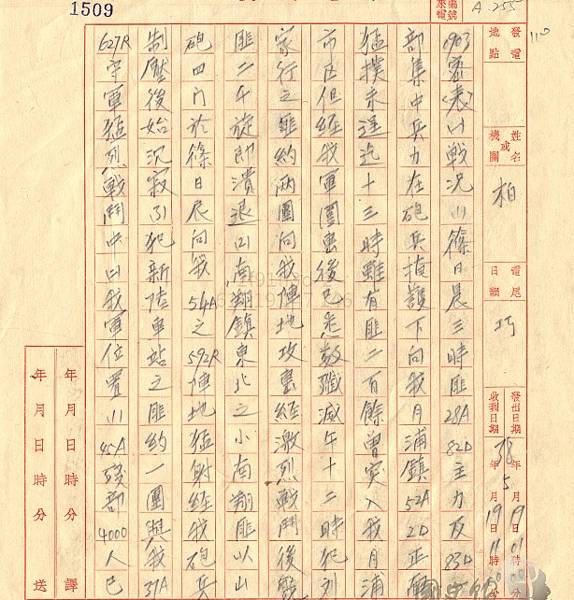 1509
A-255
110
發電地點
姓名或機關
柏
電尾日韻
巧
發出日期 38年5月19日01時 分
收到日期 19 11
0903密(表)(1)戰況(1)篠日晨三時匪28A82D主力及83D
部集中兵力在砲兵掩護下向我月浦鎮52A2D正面
猛撲未逞迄十三時雖有匪二百餘曾突入我月浦
市區但經我軍圍裹後已悉數殲滅午十二時犯劉
家行之匪約兩團向我陣地攻裹經激烈戰鬥後斃
匪二千旋即潰退(2)南翔鎮東北之小南翔匪以山
砲四門於篠日晨向我54A之592R陣地猛射經我砲兵
制壓後始沉寂(3)犯新陸車站之匪約一團與我37A
627R守軍猛烈戰鬥中(4)我軍位置(1)45A殘部4000人已
年月日時分譯
年月日時分送